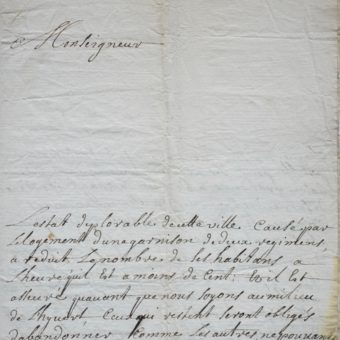 Monseigneur
L'estat deplorable de cette ville causé par
le logement d'une garnison de deux regimens,
a reduit le nombre de ses habitans a
l'heure quil est a moins de Cent: Et il est
asseuré quavant que nous soyons au milieu
de lhyvert Ceux qui restent seront obligés
dabandonner Comme les autres ne pouvans